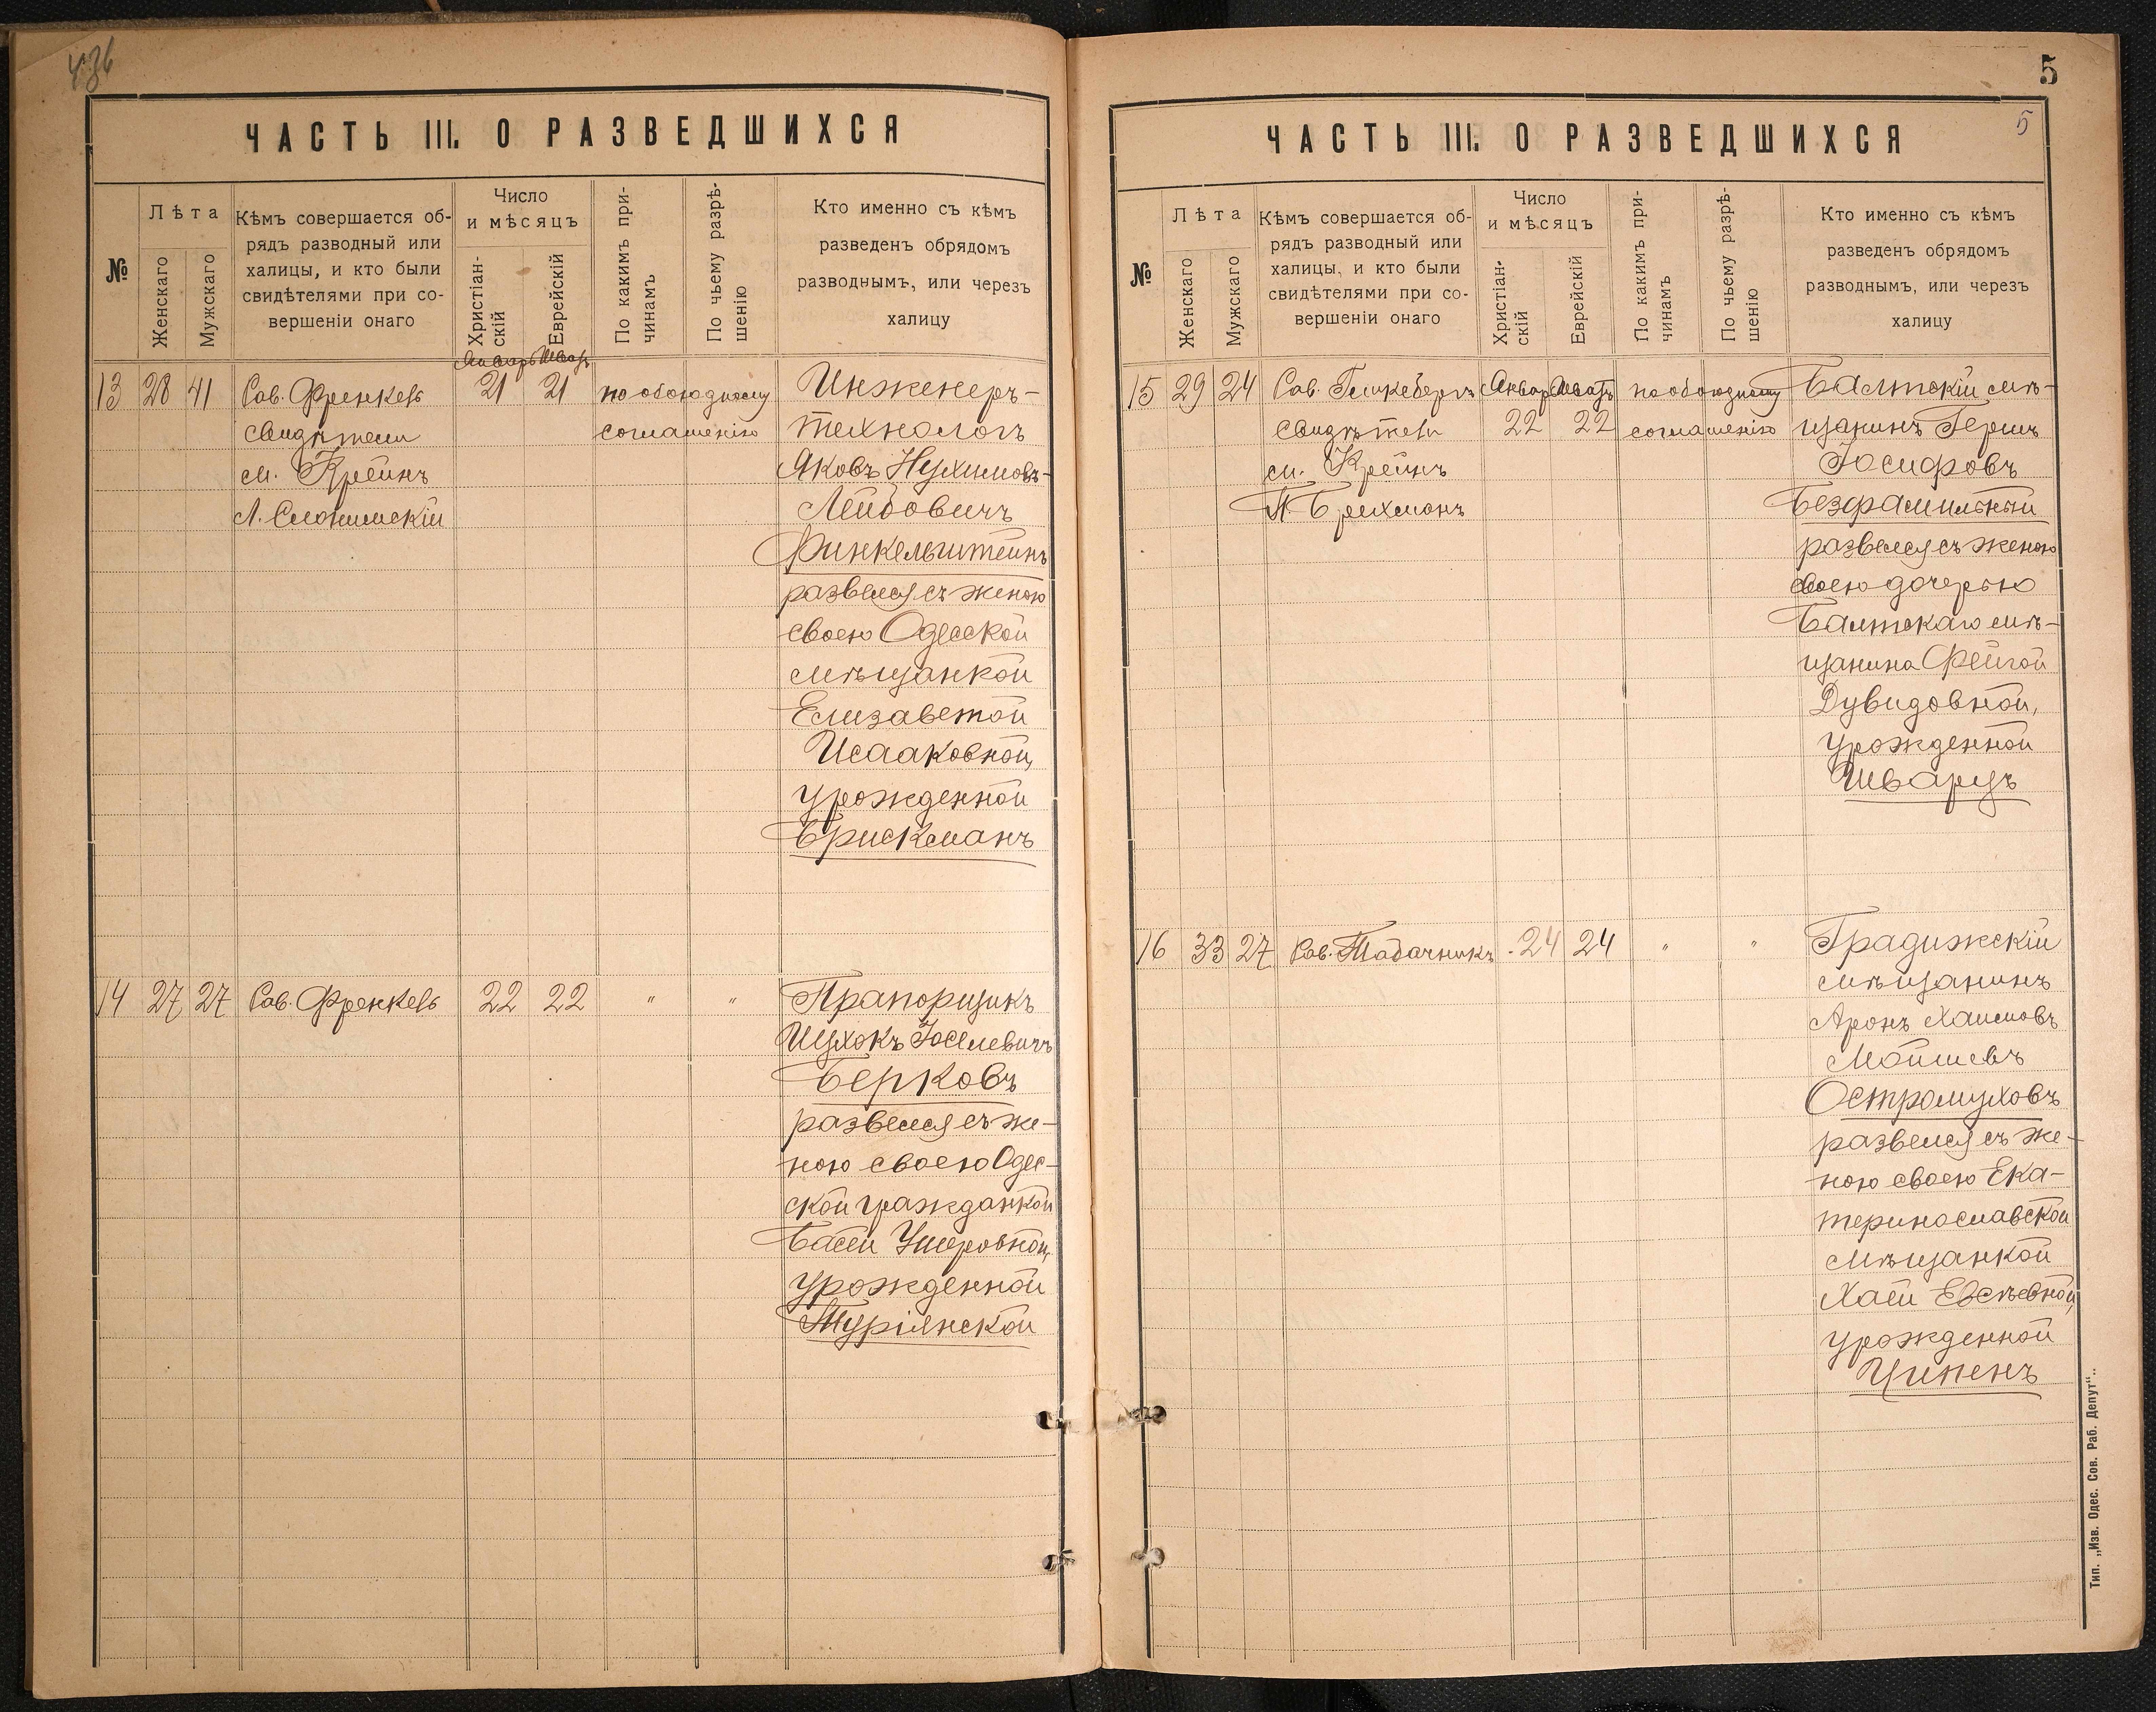 436
ЧАСТЬ III. О РАЗВЕДШИХСЯ
№
Лѣта
Женскаго
Мужскаго
Кѣмъ совершается об-
рядъ разводный или
халицы, и кто были
свидѣтелями при со-
вершеніи онаго
Число
и мѣсяцъ
Христіан-
скій
Еврейскій
По какимъ при-
чинамъ
По чьему разрѣ-
шенію
Кто именно съ кѣмъ
разведенъ обрядомъ
разводнымъ, или черезъ
халицу
Январь Шватъ
13 28 41 Рав. Френкель 21 21 по обоюдному Инженеръ-
свидѣтели соглашенію технологъ
М. Крейнъ Яковъ Нухимовъ-
Л. Слонимскій Лейбовичъ
Финкельштейнъ
развелся съ женою
своею Одесской
мѣщанкой
Елизаветой
Исааковной,
урожденной
Брискманъ
14 27 27 Рав. Френкель 22 22 " " Прапорщикъ
Ицхокъ Іоселевичъ
Берковъ
развелся съ же-
ною своею Одес-
ской гражданкой
Басей Ушеровной,
урожденной
Турiянской
5
5
ЧАСТЬ III. О РАЗВЕДШИХСЯ
№
Лѣта
Женскаго
Мужскаго
Кѣмъ совершается об-
рядъ разводный или
халицы, и кто были
свидѣтелями при со-
вершеніи онаго
Число
и мѣсяцъ
Христіан-
скій
Еврейскій
По какимъ при-
чинамъ
По чьему разрѣ-
шенію
Кто именно съ кѣмъ
разведенъ обрядомъ
разводнымъ, или черезъ
халицу
15 29 24 Рав. Гликсбергъ Январь Шватъ по обоюдному Балтскій мѣ-
свидѣтели 22 22 соглашенію щанинъ Гершъ
М. Крейнъ Іосифовъ
П. Брихманъ Безфамильный
развелся съ женою
своею дочерью
Балтскаго мѣ-
щанина Фейгой
Дувидовной,
урожденной
Шварцъ
16 33 27 Рав. Табачникъ 24 24 " " Градижскій
мѣщанинъ
Аронъ Хаимовъ
Мойшевъ
Остромуховъ
развелся съ же-
ною своею Ека-
теринославской
мѣщанкой
Хаей Евсѣевной,
урожденной
Ципенъ
Тип. „Изв. Одес. Сов. Раб. Депут“..